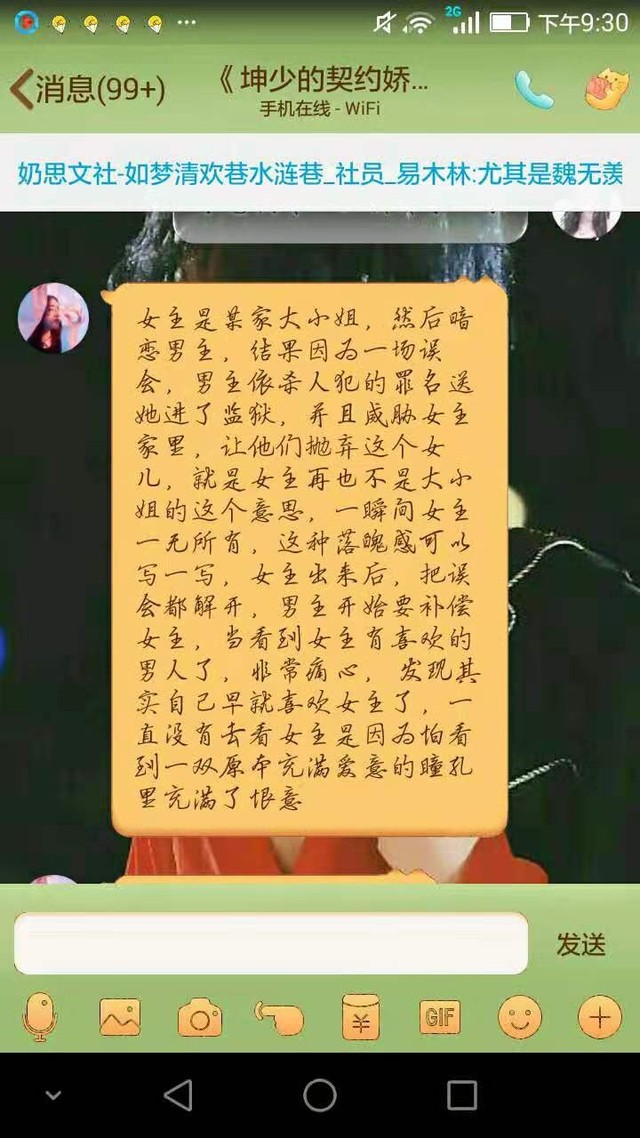 2G
下午9:30
消息(99+)
《坤少的契约娇...
手机在线 - WiFi
奶思文社-如梦清欢巷水涟巷_社员_易木林:尤其是魏无羡
女主是某家大小姐，然后暗
恋男主，结果因为一场误
会，男主依杀人犯的罪名送
她进了监狱，并且威胁女主
家里，让他们抛弃这个女
儿，就是女主再也不是大小
姐的这个意思，一瞬间女主
一无所有，这种落魄感可以
写一写，女主出来后，把误
会都解开，男主开始要补偿
女主，当看到女主有喜欢的
男人了，非常痛心，发现其
实自己早就喜欢女主了，一
直没有去看女主是因为怕看
到一双原本充满爱意的瞳孔
里充满了恨意
发送
¥
GIF